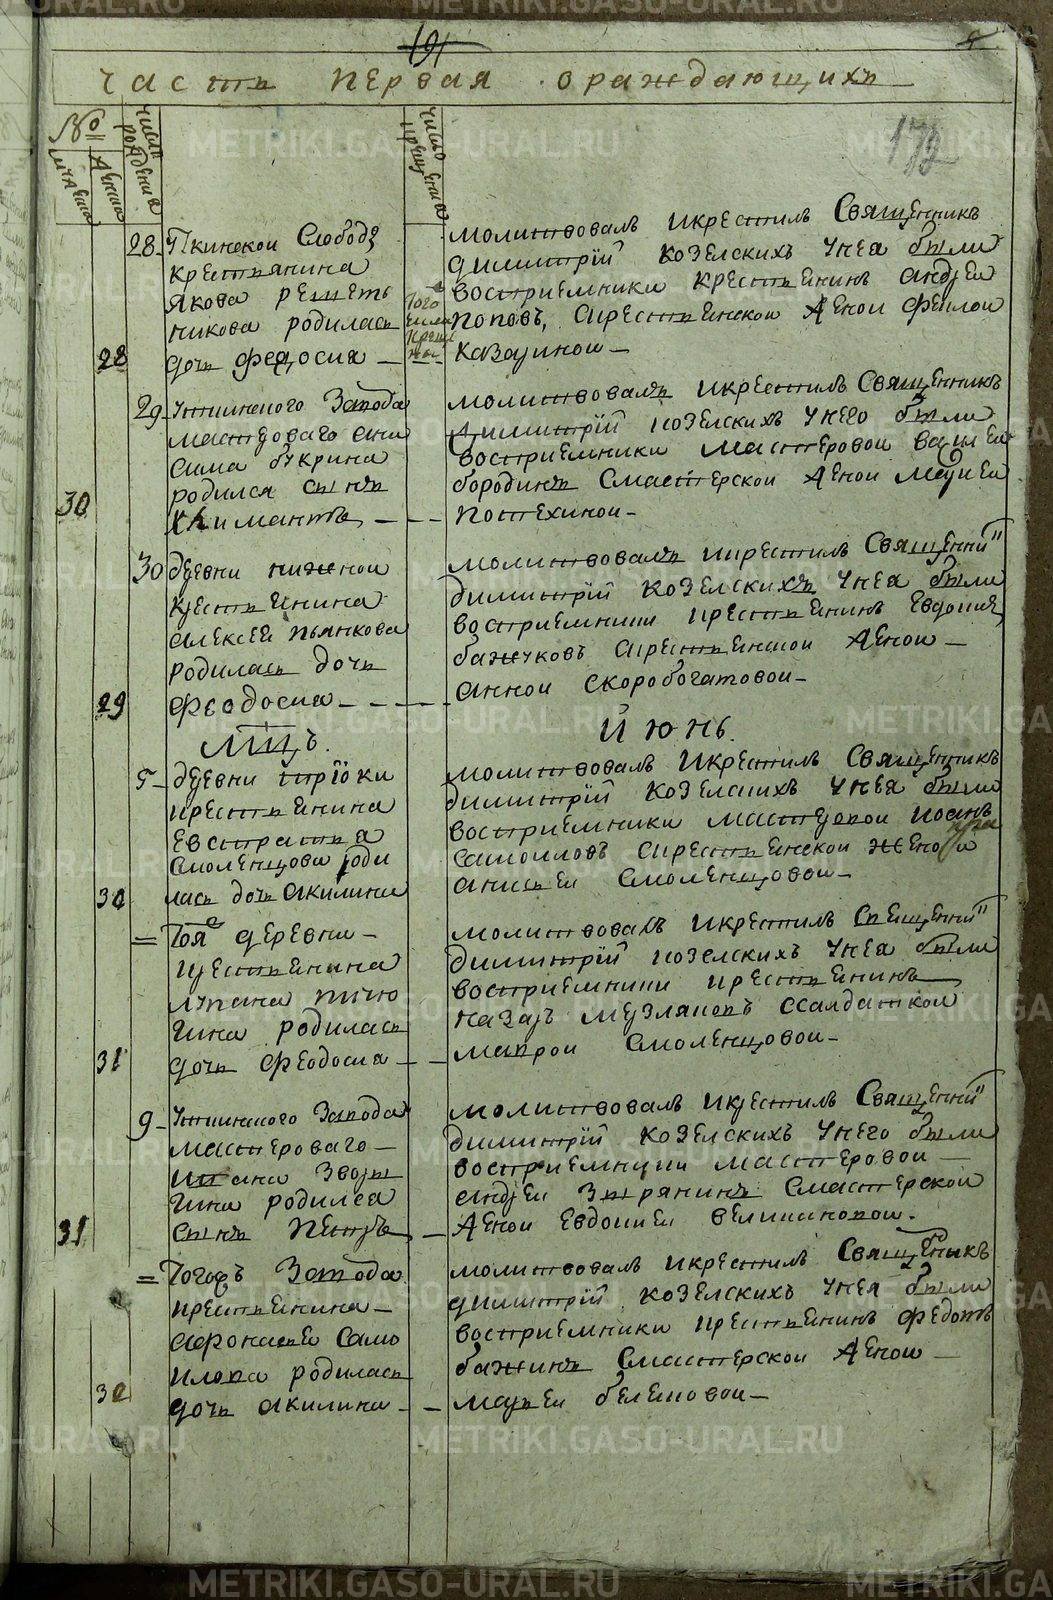 часть первая о раждающихъ
№
мужеска
женска
число рождения
число крещения
28 Уткинской Слободы
крестьянина
Якова Решеть
никова родилась
28 дочь Федосиа
Того
числа
крещ
молитвовалъ и крестилъ Священникъ
Димитрїй Козелскихъ у нея были
восприемники крестьенинъ Андреи
Поповъ, с крестьенской женои Феклои
29 Уткинского Завода
мастероваго
Букрина
родился сынъ
30 Климантъ
молитвовалъ и крестилъ Священникъ
Димитрїй Козелскихъ у него были
восприемники мастеровои Василеи
Бородинъ с мастерской женои Мариеи
Потехинои
30 деревни нижнои
крестьенина
Алексеи Пьянкова
родилась дочь
29 Феодосиа
молитвовалъ и крестилъ Священни
Димитрїй Козелскихъ у нея были
восприемники крестьенинъ Евдоким
Бажуковъ с крестьенской женои
Аннои Скоробогатовои
Мцъ. Июнь.
5 деревни трїоки
крестьенина
Евстратиа
Смоленцова роди
30 лась дочь Акилина
молитвовалъ и крестилъ Священникъ
Димитрїй Козелскихъ у нея были
восприемники мастеровои Иоанъ
Самоиловъ с крестьенской женою
Анисьеи Смоленцовои
Тоя деревни
крестьенина
Лупана
родилась
31 дочь Феодосиа
молитвовалъ и крестилъ Священни
Димитрїй Козелскихъ у нея были
восприемники крестьенинъ
Назаръ Музлановъ с салдаткои
Маврои Смоленцовои
9 Уткинского Завода
мастероваго
Ивана Зворы
гина родилса
31 сынъ Петръ
молитвовалъ и крестилъ Священни
Димитрїй Козелскихъ у него были
восприемники мастеровои
Андреи Зырянинъ с мастерской
женои Евдокиеи Великановои.
Тогожъ Завода
крестьенина
Афонасьеи Само
илова родилась
32 дочь Акилина
молитвовалъ и крестилъ Священникъ
Димитрїй Козелскихъ у нея были
восприемники крестьенинъ Федотъ
Бажинъ с мастерской женои
Марьеи
METRIKI.GASO-URAL.RU